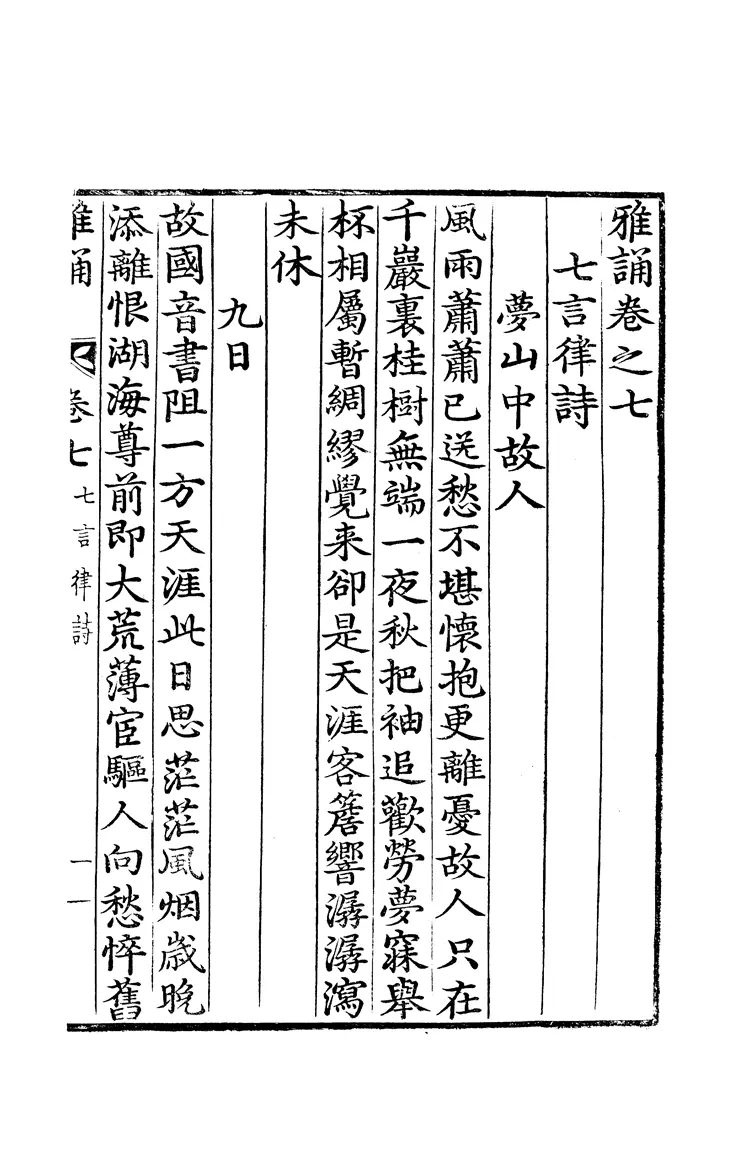 雅誦卷之七
七言律詩
夢山中故人
風雨蕭蕭已送愁不堪懐抱更離憂故人只在
千巖裏桂樹無端一夜秋把袖追歡勞夢寐舉
杯相屬暫綢繆覺来卻是天涯客簷響潺潺瀉
未休
九日
故國音書阻一方天涯此日思茫茫風烟歳晚
添離恨湖海尊前即大荒薄宦驅人向愁悴舊
雅誦 卷七 七言律詩 一